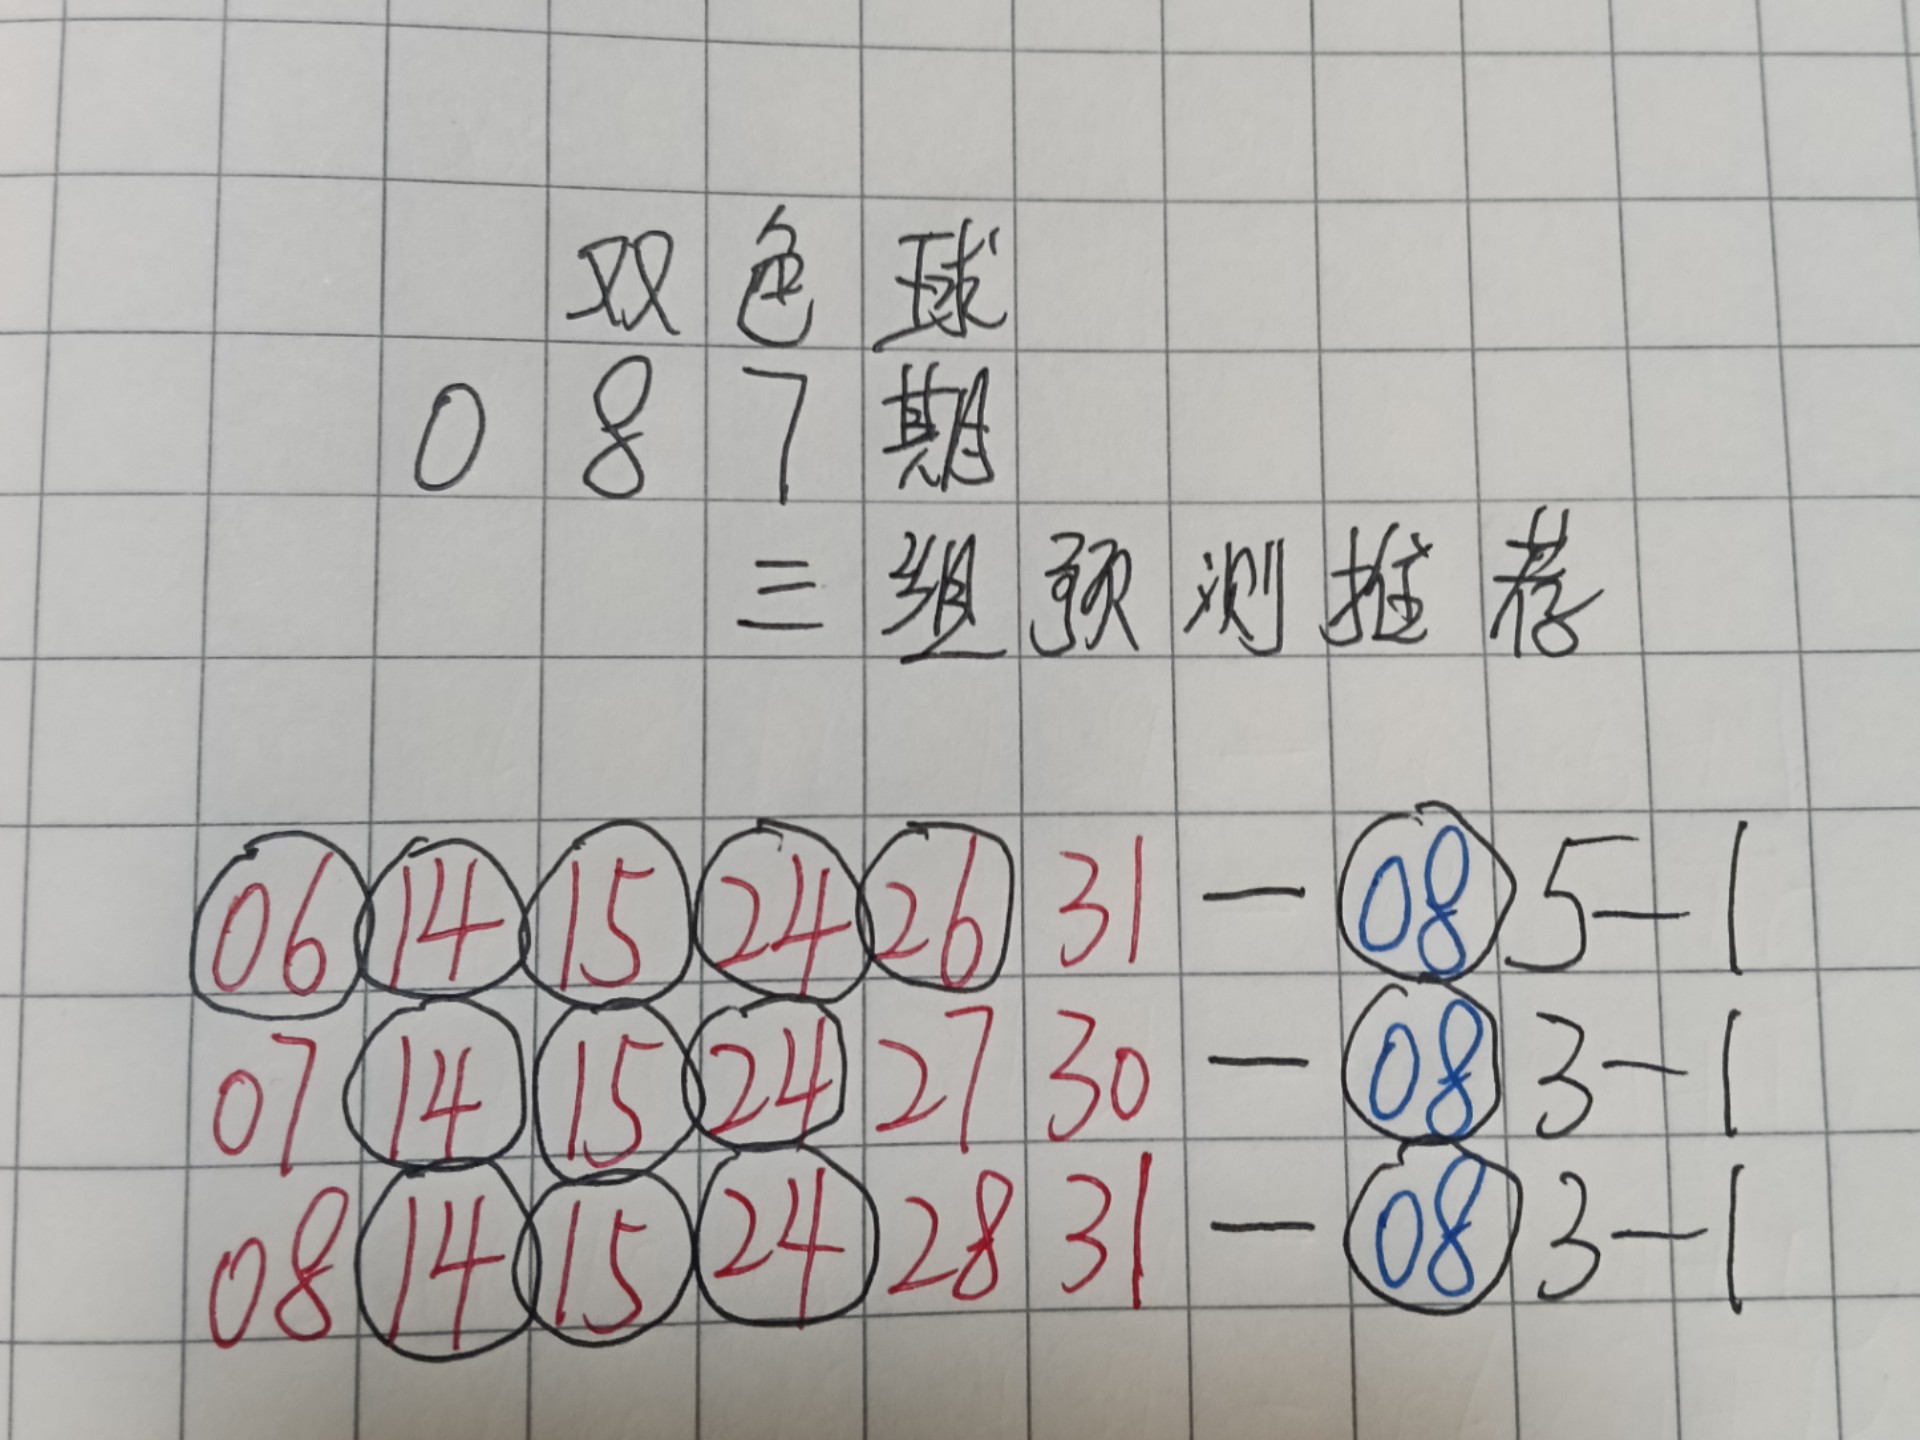 双色球
087期
三组预测推荐
06 14 15 24 26 31 — 08 5—1
07 14 15 24 27 30 — 08 3—1
08 14 15 24 28 31 — 08 3—1